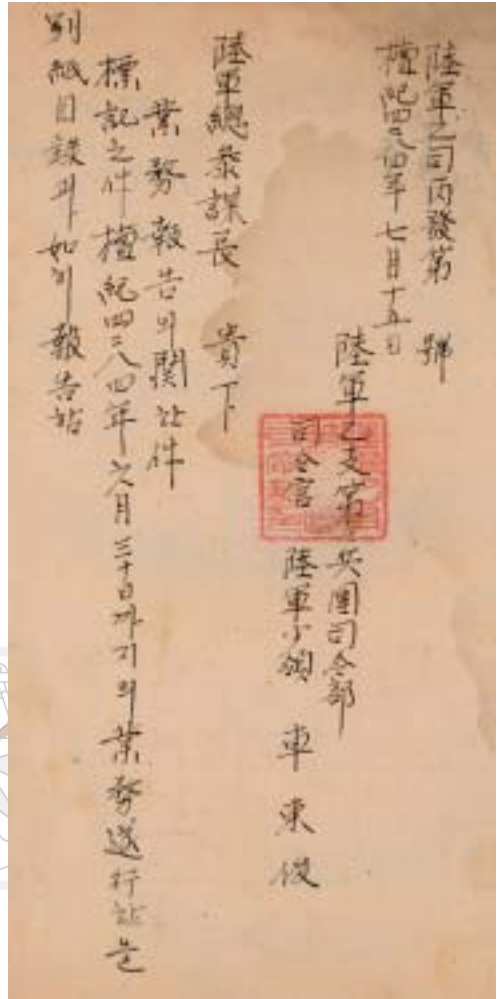 陸軍乙司丙發第　號
檀紀四二八四年七月十五日
陸軍乙支第 兵團司令部
司令官 陸軍小領 車東俊
陸軍總參謀長 貴下
業務報告의 關한件
標記之件 檀紀四二八四年六月三十日까지의 業務遂行한 는
別紙目錄과 如히 報告함